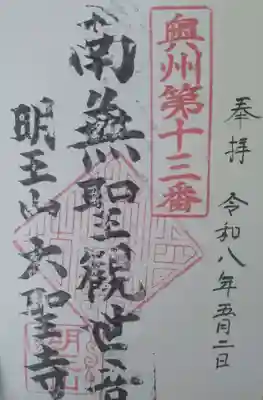 奉拝 令和八年五月二日
奥州第十三番
南無聖観世音
明王山大聖寺